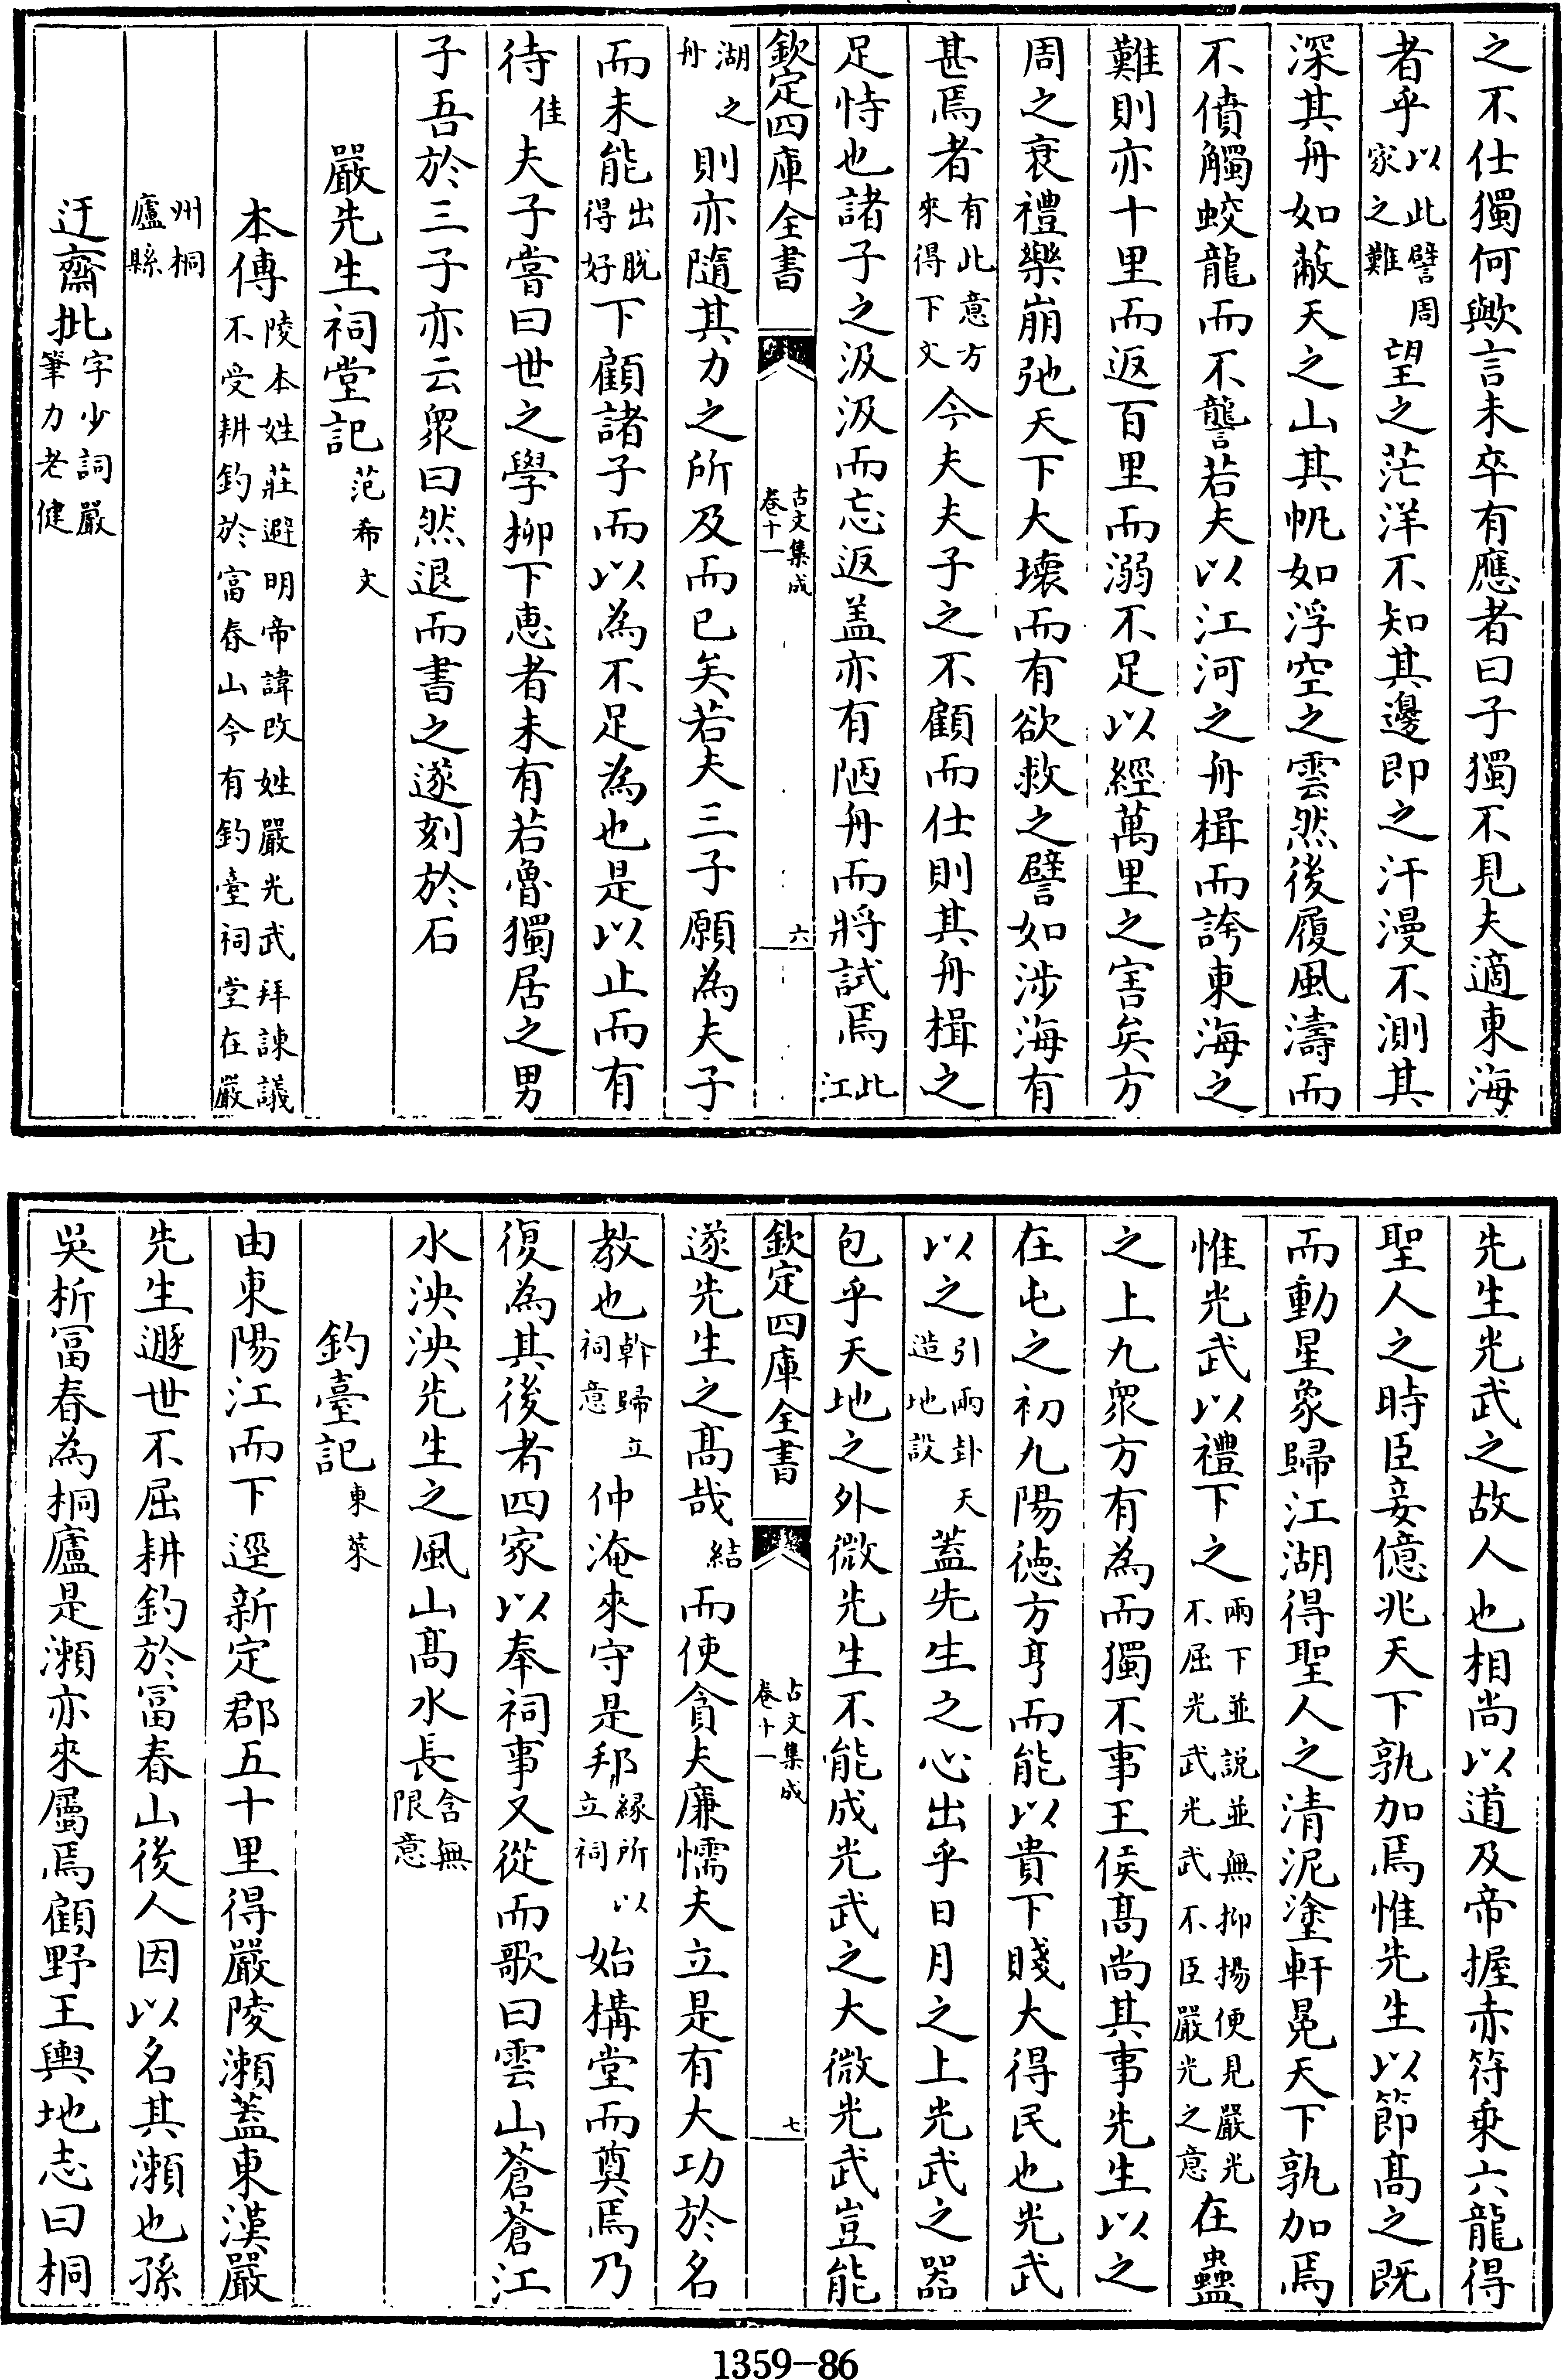 之不仕獨何歟言未卒有應者曰子獨不見夫適東海
者乎以此譬周家之難望之茫洋不知其邊即之汗漫不測其
深其舟如蔽天之山其帆如浮空之雲然後履風濤而
不僨觸蛟龍而不讋若夫以江河之舟楫而誇東海之
難則亦十里而返百里而溺不足以經萬里之害矣方
周之衰禮樂崩弛天下大壞而有欲救之譬如涉海有
甚焉者有此意方來得下文今夫夫子之不顧而仕則其舟楫之
足恃也諸子之汲汲而忘返盖亦有陋舟而將試焉此江
欽定四庫全書
古文集成
卷十一
六
湖之舟則亦隨其力之所及而已矣若夫三子願為夫子
而未能出脫得好下顧諸子而以為不足為也是以止而有
待佳夫子嘗曰世之學柳下惠者未有若魯獨居之男
子吾於三子亦云衆曰然退而書之遂刻於石
嚴先生祠堂記范希文
本傳陵本姓莊避明帝諱改姓嚴光武拜諫議不受耕釣於富春山今有釣臺祠堂在嚴
州桐廬縣
迂齋批字少詞嚴筆力老健
先生光武之故人也相尚以道及帝握赤符乗六龍得
聖人之時臣妾億兆天下孰加焉惟先生以節髙之既
而動星象歸江湖得聖人之清泥塗軒冕天下孰加焉
惟光武以禮下之兩下並說並無抑揚便見嚴光不屈光武光武不臣嚴光之意在蠱
之上九衆方有為而獨不事王侯髙尚其事先生以之
在屯之初九陽徳方亨而能以貴下賤大得民也光武
以之引兩卦天造地設蓋先生之心出乎日月之上光武之器
包乎天地之外微先生不能成光武之大微光武豈能
欽定四庫全書
古文集成
卷十一
七
遂先生之髙哉結而使貪夫廉懦夫立是有大功於名
教也斡歸立祠意仲淹來守是邦緣所以立祠始構堂而奠焉乃
復為其後者四家以奉祠事又從而歌曰雲山蒼蒼江
水泱泱先生之風山髙水長含無限意
釣臺記東萊
由東陽江而下逕新定郡五十里得嚴陵瀨蓋東漢嚴
先生遯世不屈耕釣於富春山後人因以名其瀨也孫
吳析冨春為桐廬是瀨亦來屬焉顧野王輿地志曰桐
1359-86